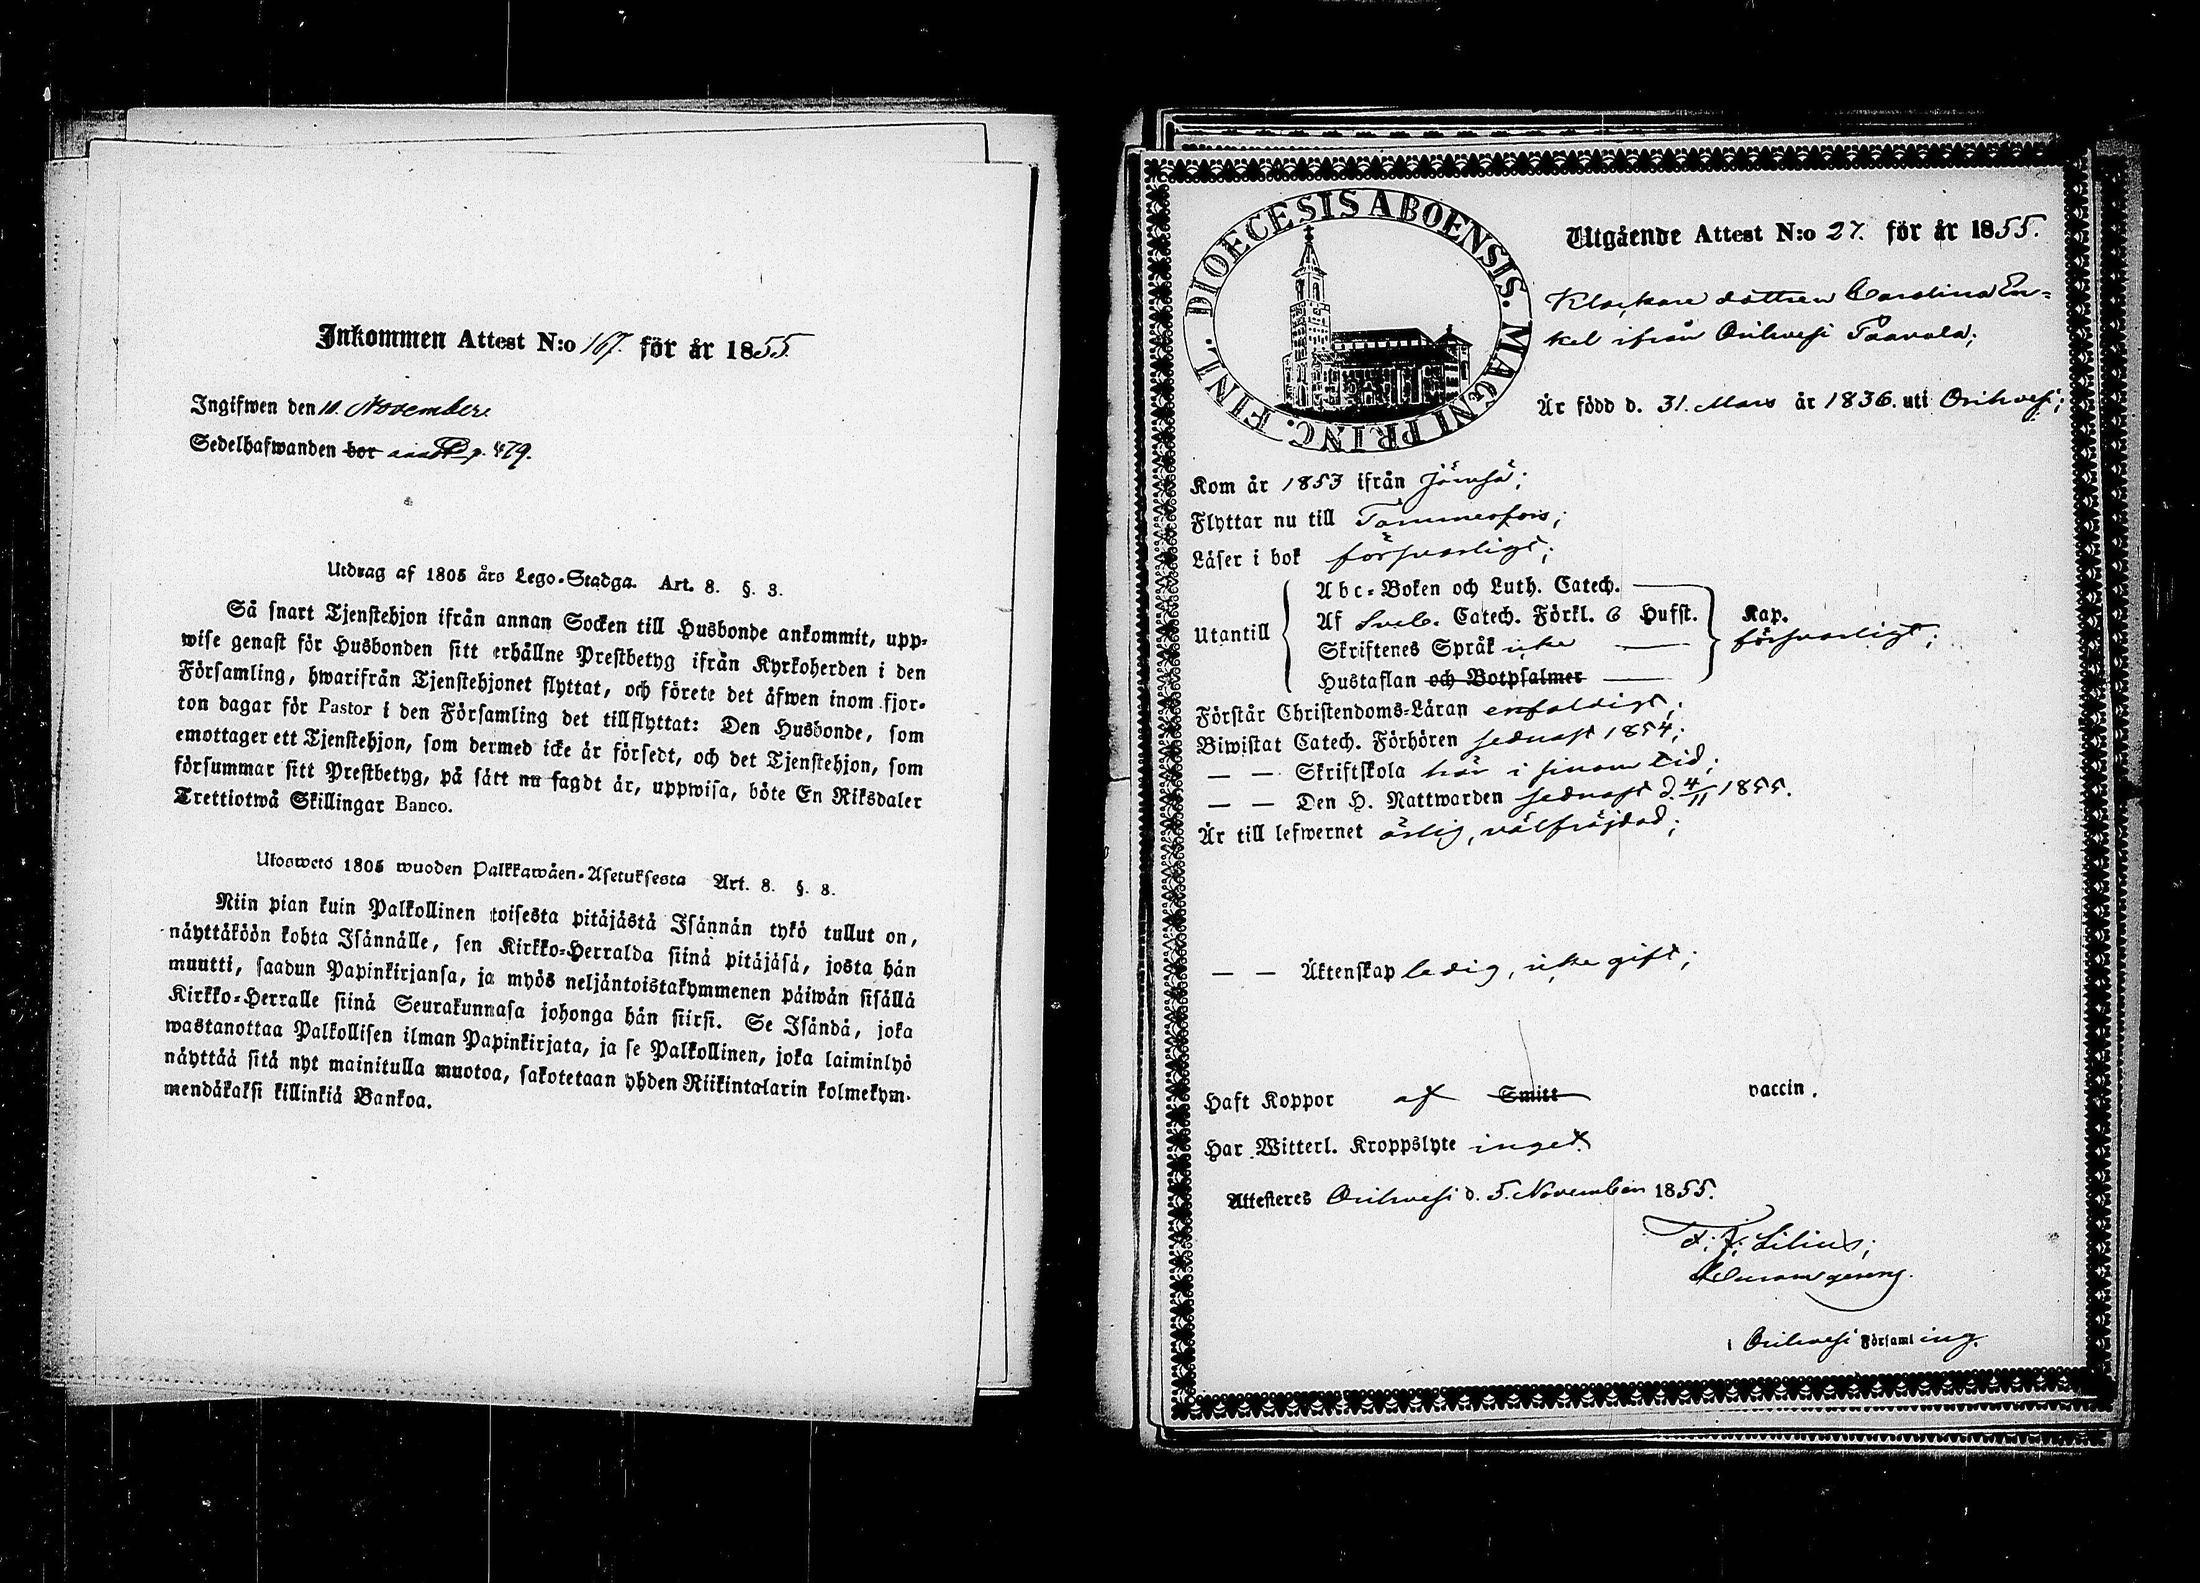 Inkommen Attest N:o 167. för år 1855
Ingifwen den 10. November
Sedelhafwanden bor p. 479.
Utdrag af 1805 års Lego-Stadga. Art. 8. §. 3.
Så snart Tjenstehjon ifrån annan Socken till Husbonde ankommit, upp-
wise genast för Husbonden sitt erhållne Prestbetyg ifrån Kyrkoherden i den
Församling, hwarifrån Tjenstehjonet flyttat, och förete det äfwen inom fjor-
ton dagar för Pastor i den Församling det tillflyttat: Den Husbonde, som
emottager ett Tjenstehjon, som dermed icke är försedt, och det Tjenstehjon, som
försummar sitt Prestbetyg, på sätt nu sagdt är, uppwisa, böte En Riksdaler
Trettiotwå Skillingar Banco.
Uloswets 1805 wuoden Palkkawäen-Asetuksesta Art. 8. §. 8.
Niin pian kuin Palkollinen toisesta pitäjästä Isännän tykö tullut on,
näyttäköön kohta Isännälle, sen Kirkko-Herralda siinä pitäjäsä, josta hän
muutti, saadun Papinkirjansa, ja myös neljäntoistakymmenen päiwän sisällä
Kirkko-Herralle siinä Seurakunnasa johonga hän siirsi. Se Isändä, joka
wastanottaa Palkollisen ilman Papinkirjata, ja se Palkollinen, joka laiminlyö
näyttää sitä nyt mainitulla muotoa, sakotetaan yhden Riikintalarin kolmekym-
mendäkaksi killinkiä Bankoa.
DIOECESIS ABOENSIS. MAGNI PRINC. FINL.
Utgående Attest N:o 27. för år 1855.
Klockare dottren Carolina En-
kel ifrån Orihvesi Paavola;
Är född d. 31. Mars år 1836. uti Orihvesi;
Kom år 1853 ifrån Jämsä;
Flyttar nu till Tammerfors;
Läser i bok försvarligt;
Utantill
Abc-Boken och Luth. Catech.
Af Sveb. Catech. Förkl. 6 Hufst. Kap.
Skriftenes Språk icke försvarligt;
Hustaflan och Botpsalmer
Förstår Christendoms-Läran enfaldigt;
Biwistat Catech. Förhören sednast 1854;
— — Skriftskola här i sinom tid;
— — Den H. Nattwarden sednast d. 4/11 1855.
Är till lefwernet ärlig, välfräjdad;
— — Äktenskap ledig, icke gift;
Haft Koppor af Smitt vaccin.
Har Witterl. Kroppslyte inget.
Attesteres Orihvesi d. 5. November 1855.
F. J. Lilius;
i Orihvesi Församling.